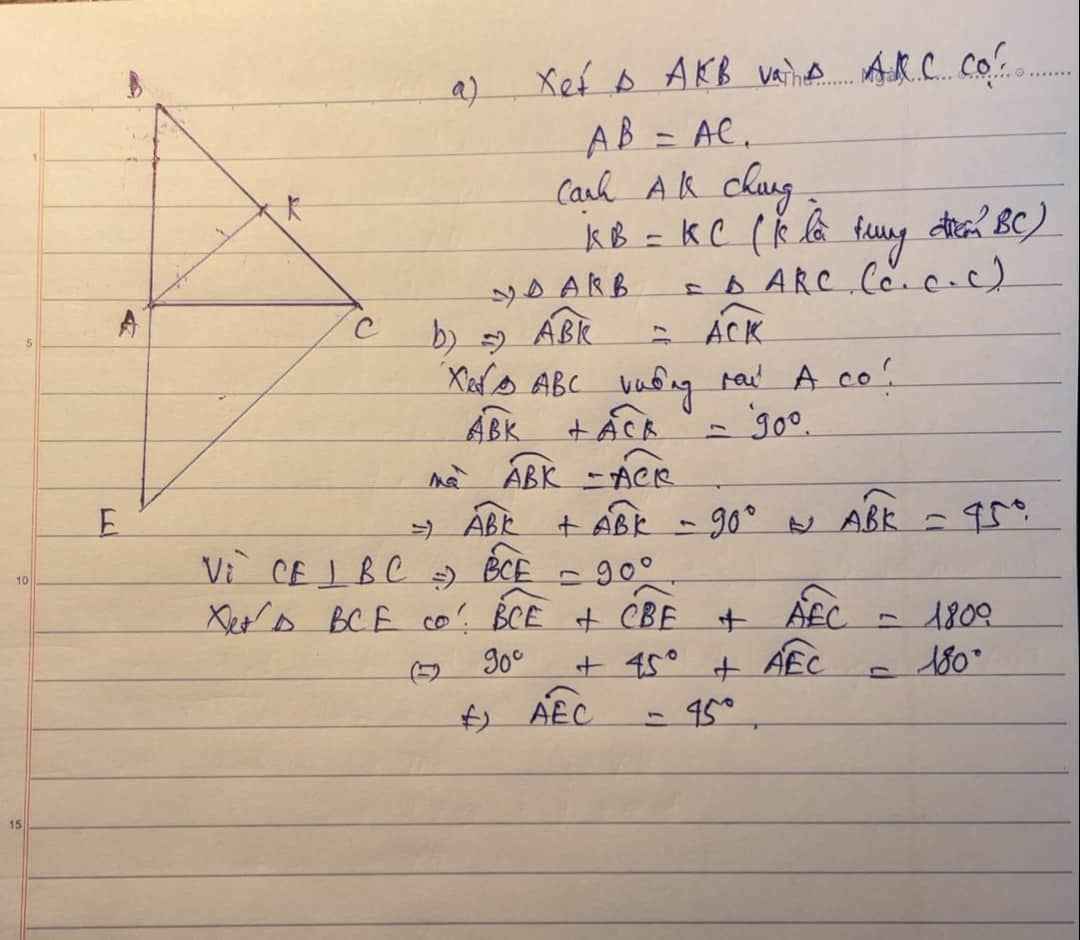 B
K
A
C
E
a) Xét Δ AKB và Δ AKC có:
AB = AC.
Cạnh AK chung.
KB = KC (K là trung điểm BC)
=> Δ AKB = Δ AKC (c.c.c)
b) => ABK = ACK
Xét Δ ABC vuông tại A có:
ABK + ACK = 90°.
mà ABK = ACK.
=> ABK + ABK = 90° => ABK = 45°.
Vì CE ⊥ BC => BCE = 90°.
Xét Δ BCE có: BCE + CBE + AEC = 180°
(=) 90° + 45° + AEC = 180°
(=) AEC = 45°.
1
5
10
15